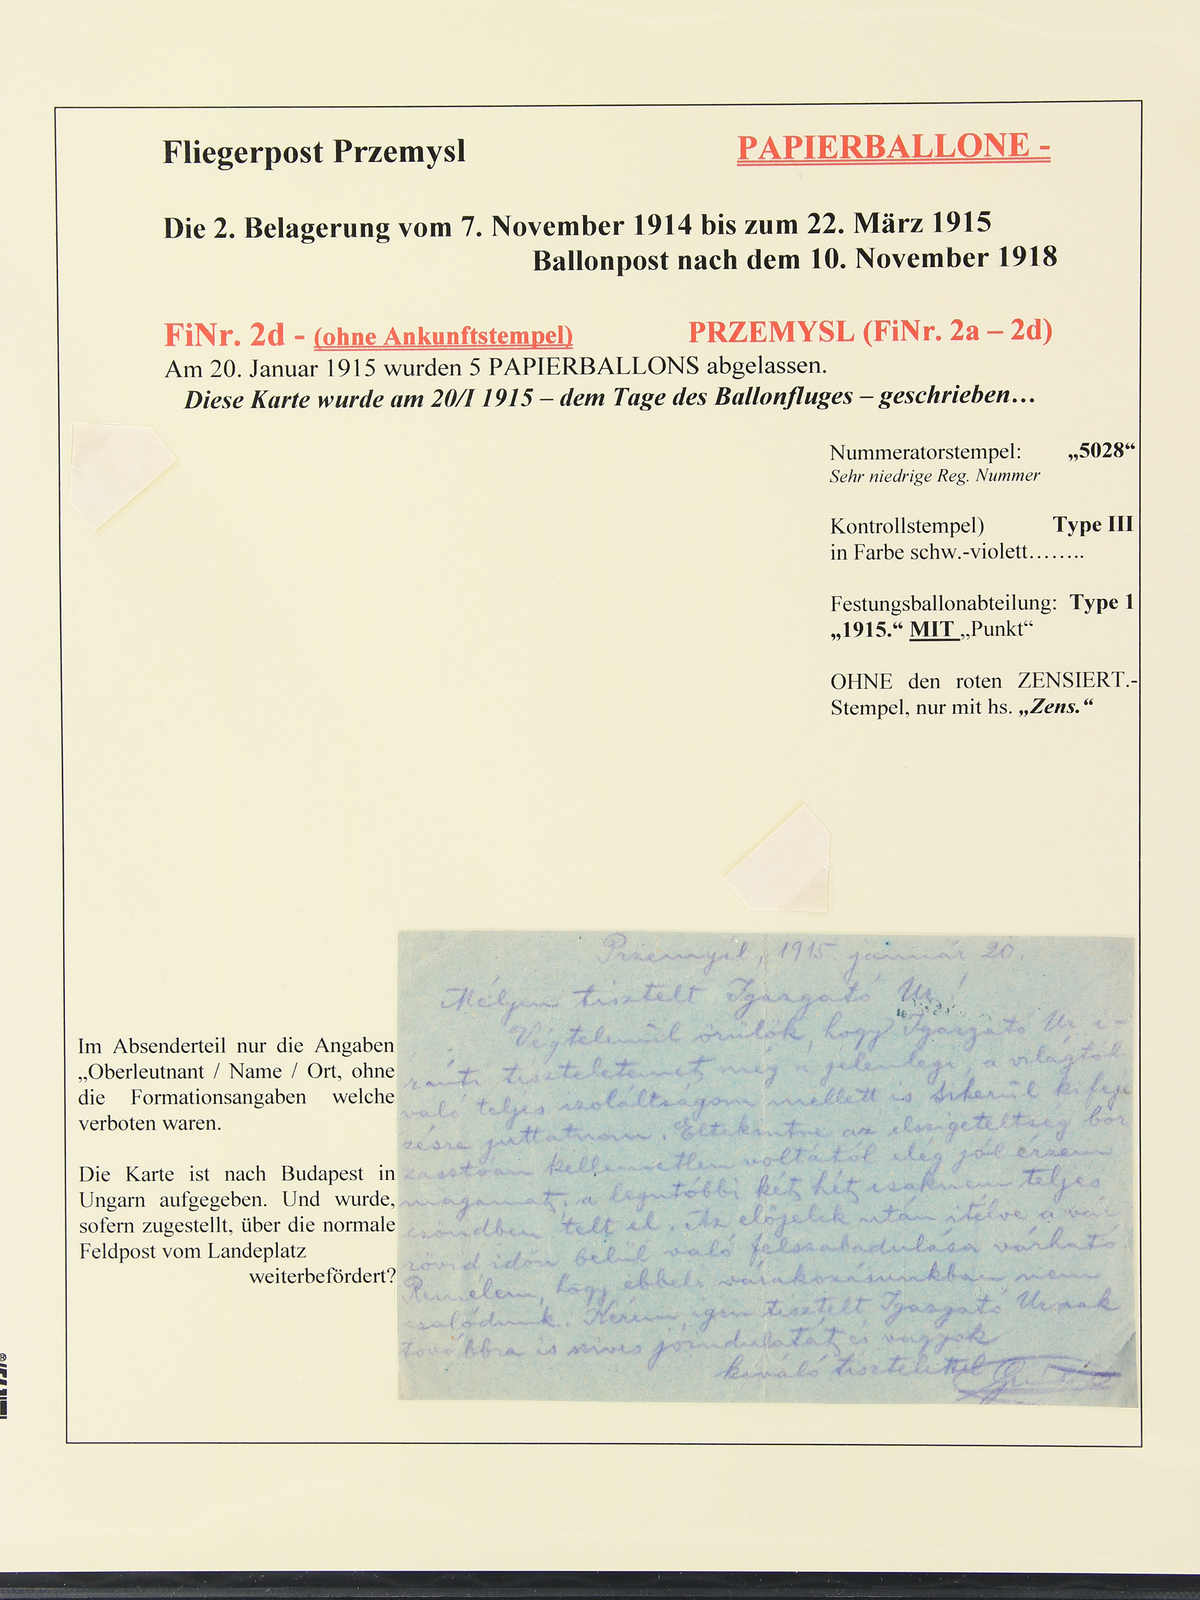 Fliegerpost Przemysl
PAPIERBALLONE -
Die 2. Belagerung vom 7. November 1914 bis zum 22. März 1915
Ballonpost nach dem 10. November 1918
FiNr. 2d - (ohne Ankunftstempel)
PRZEMYSL (FiNr. 2a – 2d)
Am 20. Januar 1915 wurden 5 PAPIERBALLONS abgelassen.
Diese Karte wurde am 20/I 1915 – dem Tage des Ballonfluges – geschrieben…
Nummeratorstempel: „5028“
Sehr niedrige Reg. Nummer
Kontrollstempel) Type III
in Farbe schw.-violett……..
Festungsballonabteilung: Type 1
„1915.“ MIT „Punkt“
OHNE den roten ZENSIERT.-
Stempel, nur mit hs. „Zens.“
Im Absenderteil nur die Angaben
„Oberleutnant / Name / Ort, ohne
die Formationsangaben welche
verboten waren.
Die Karte ist nach Budapest in
Ungarn aufgegeben. Und wurde,
sofern zugestellt, über die normale
Feldpost vom Landeplatz
weiterbefördert?
Przemyśl, 1915. január 20.
Mélyen tisztelt Igazgató Ur!
Végtelenül örülök, hogy Igazgató Ur i-
ránti tiszteletemet még a jelenlegi, a világtól
való teljes izoláltságom mellett is sikerül kifeje
zésre juttatnom. Eltekintve az elszigeteltség bor
zasztóan kellemetlen voltától elég jól érzem
magamat, a legutóbbi két hét csaknem teljes
csöndben telt el. Az előjelek után itélve a vár
rövid időn belül való felszabadulása várható.
Remélem, hogy ebbeli várakozásunkban nem
csalódunk. Kérem, igen tisztelt Igazgató Urnak
továbbra is szives jóindulatát és vagyok
kiváló tisztelettel